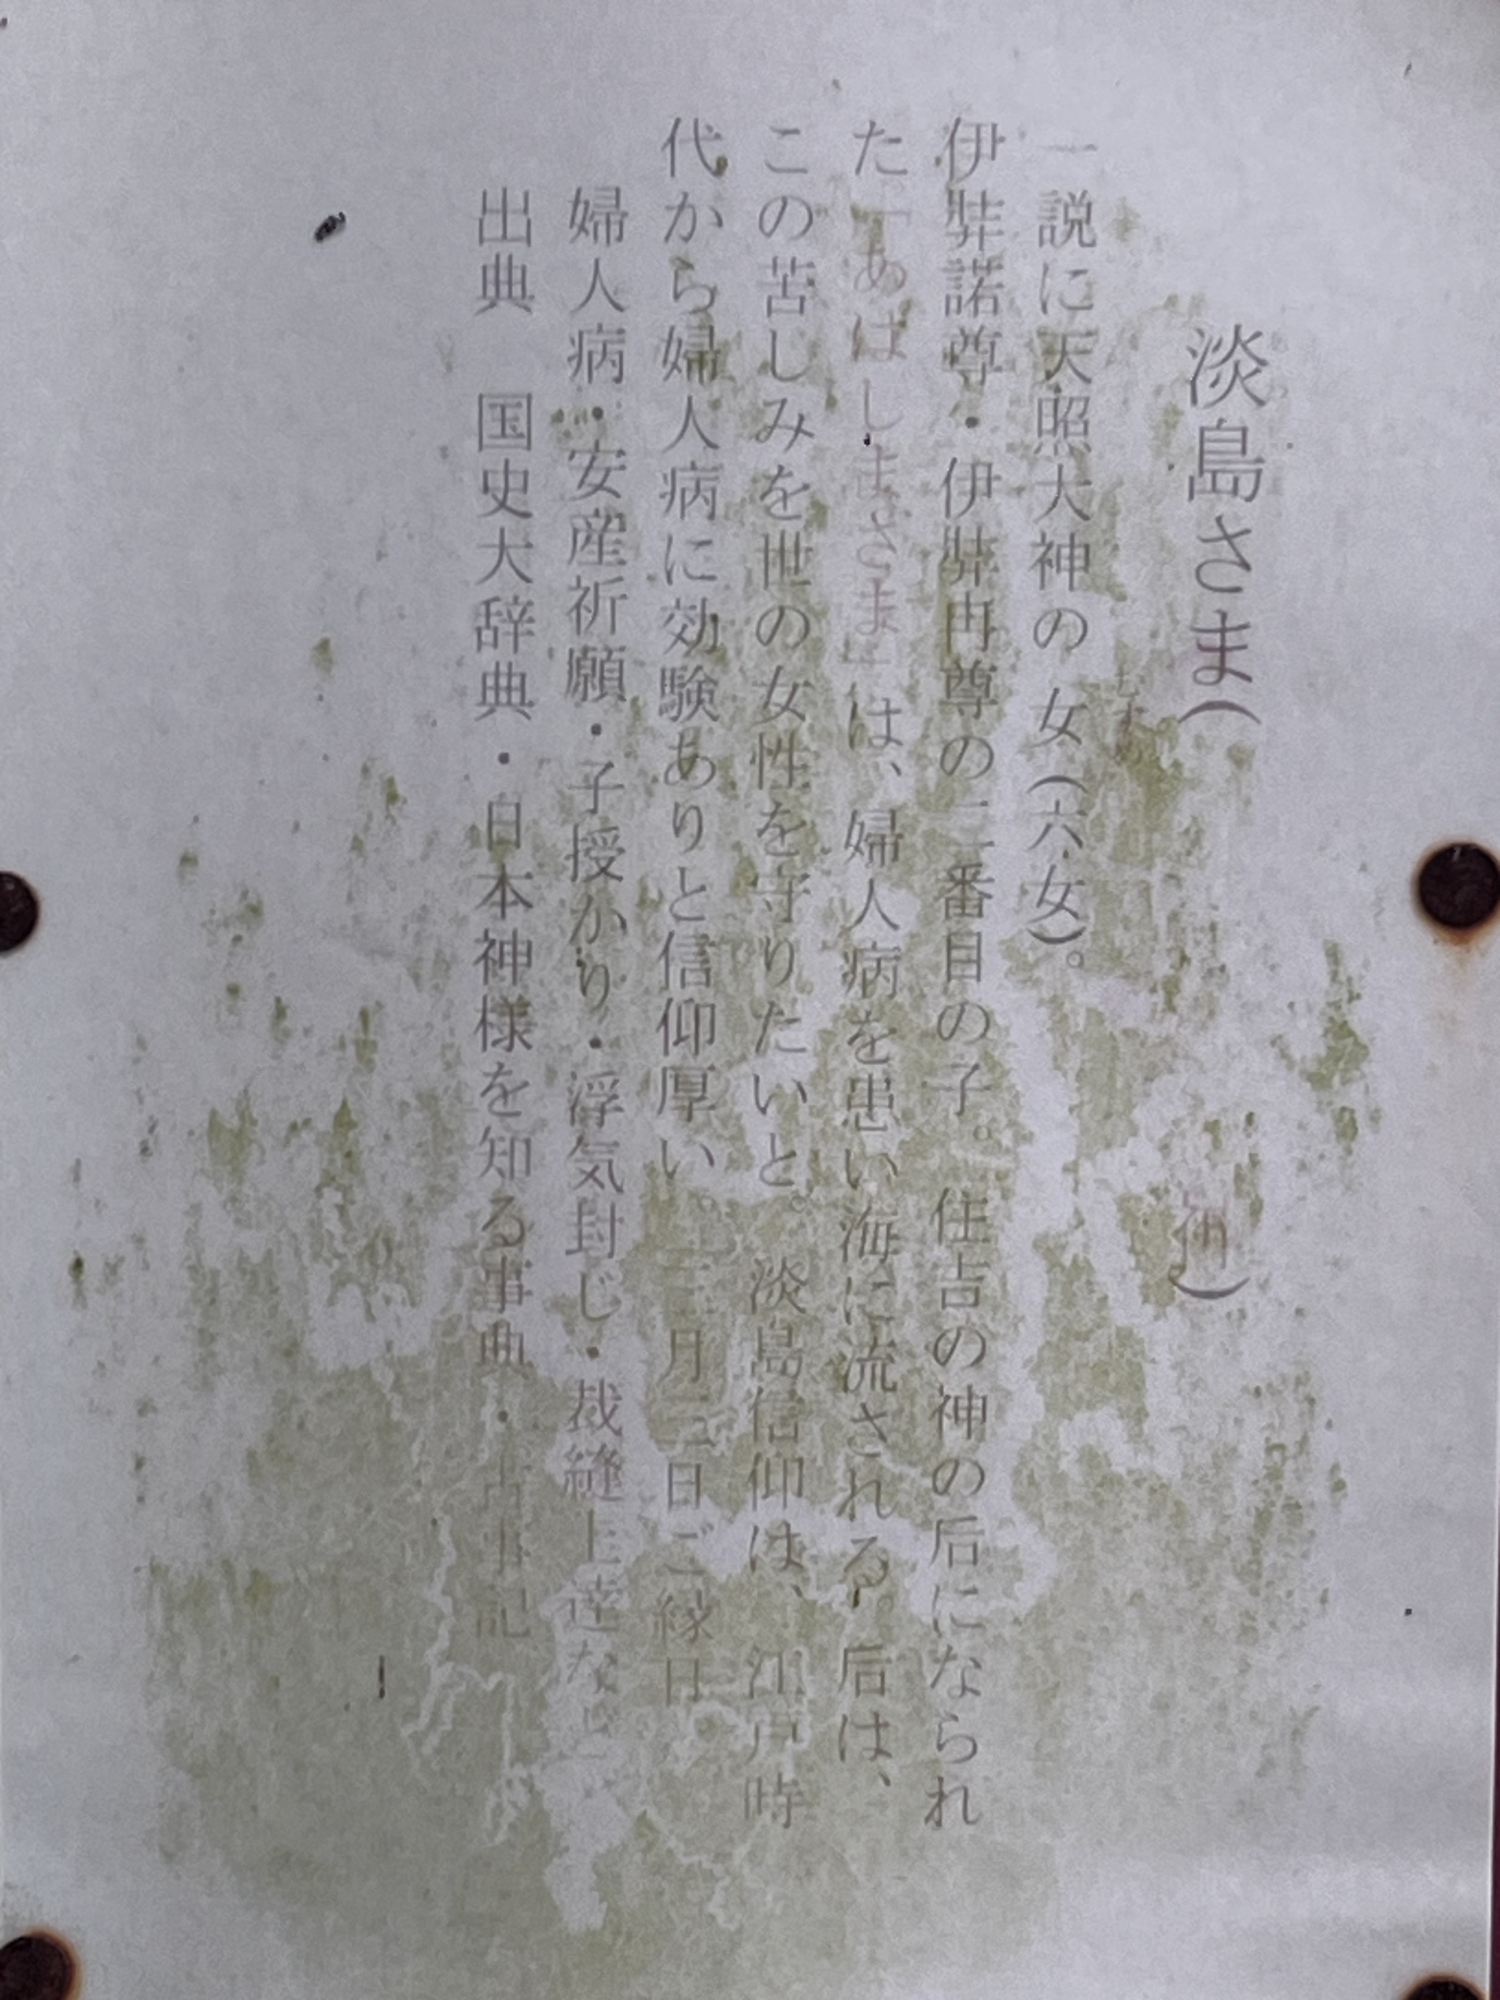 淡島さま（　　　）
一説に天照大神の女（六女）。
伊弉諾尊・伊弉冉尊の二番目の子。住吉の神の后になられ
た「あはしまさま」は、婦人病を患い海に流される。后は、
この苦しみを世の女性を守りたいと。淡島信仰は、江戸時
代から婦人病に効験ありと信仰厚い。三月三日ご縁日
婦人病・安産祈願・子授かり・浮気封じ・裁縫上達など
出典　国史大辞典・日本神様を知る事典・古事記